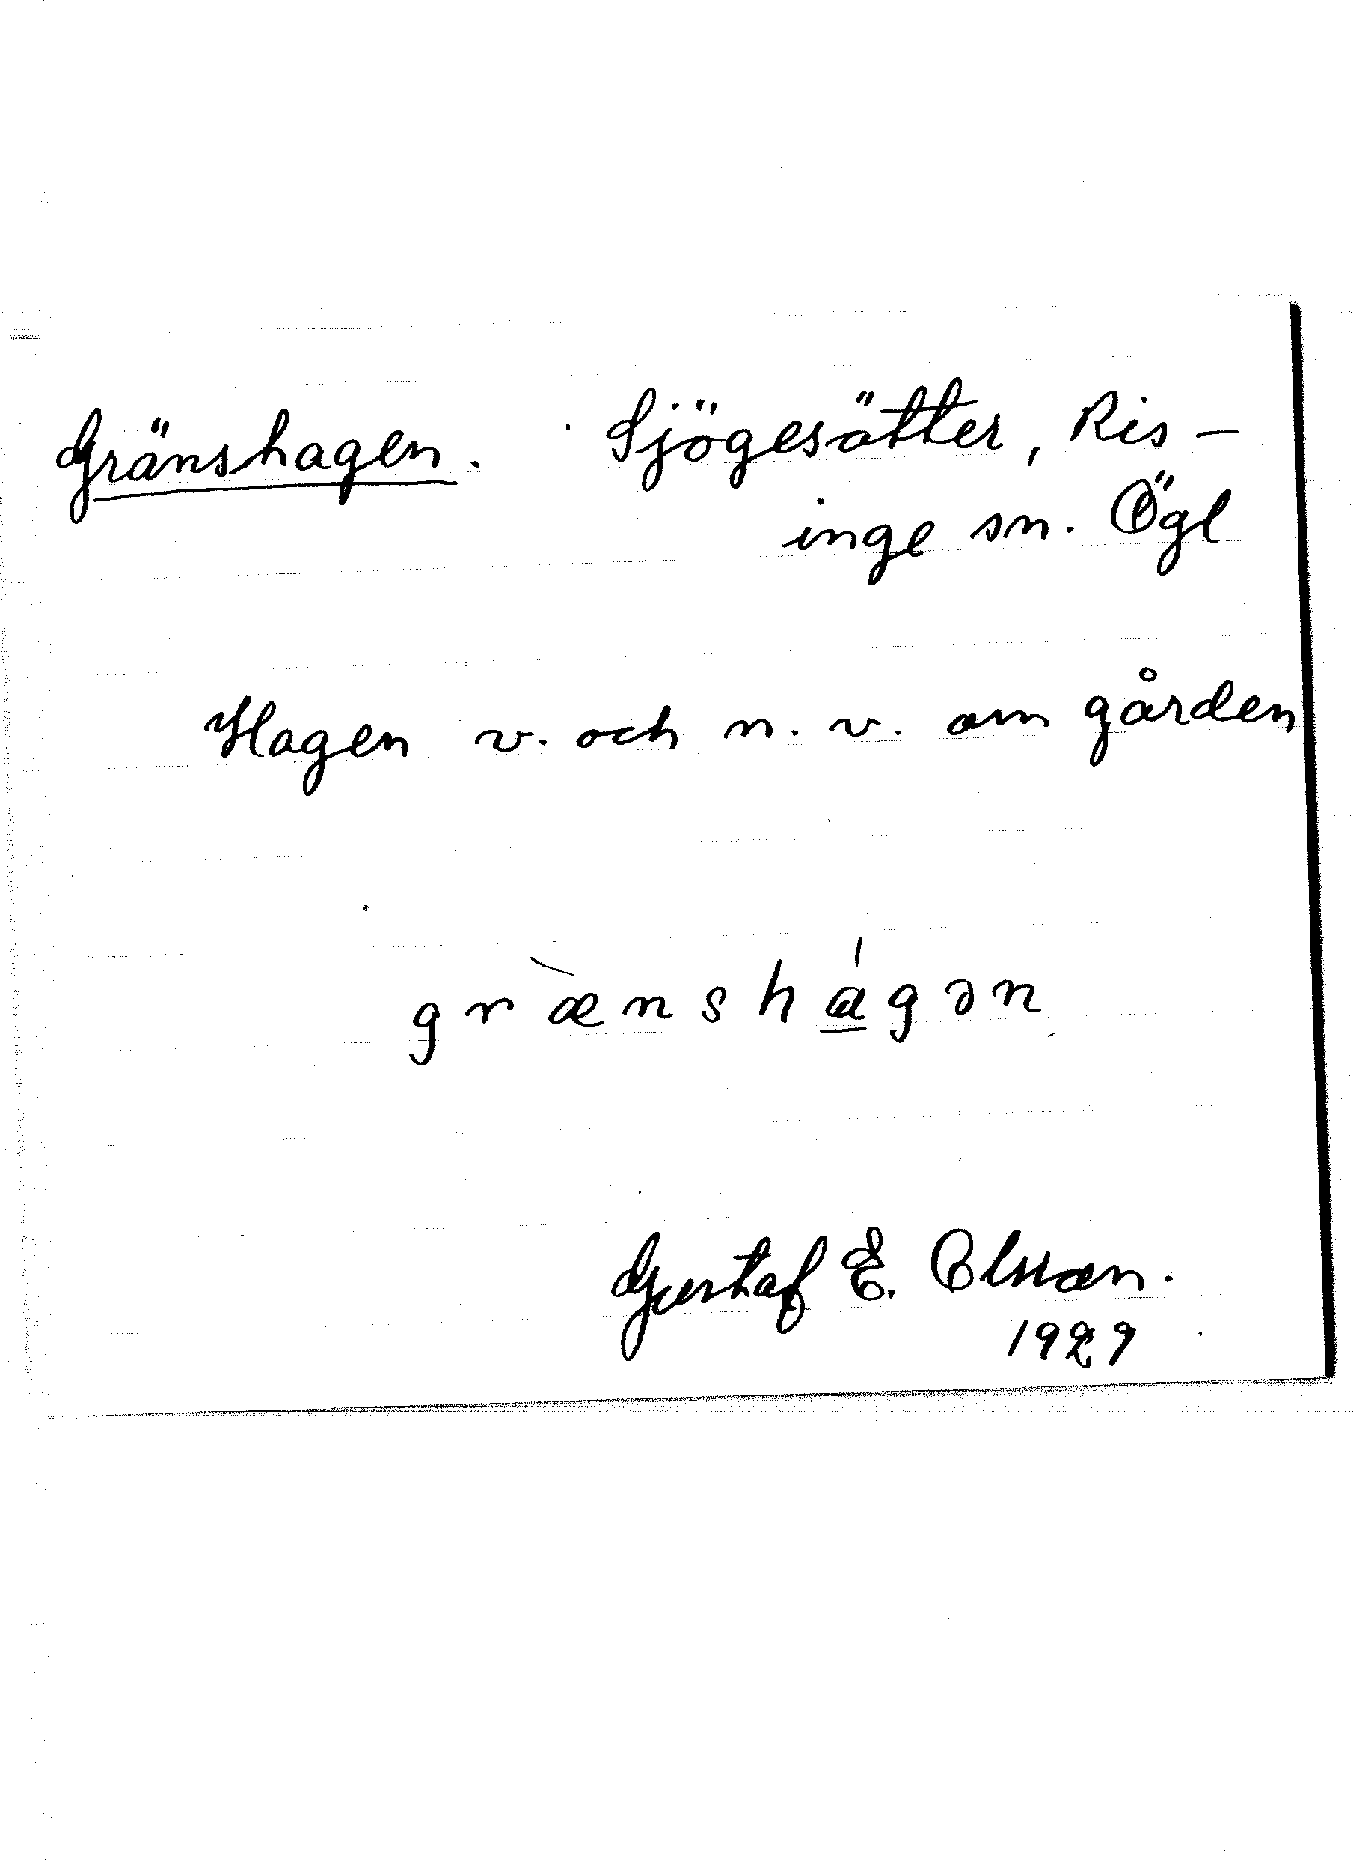 Gränshagen. Sjögesätter, Ris-
inge sn. Ögl
Hagen v. och n. v. om gården
græ̀nshágən
Gustaf E. Olsson.
1929